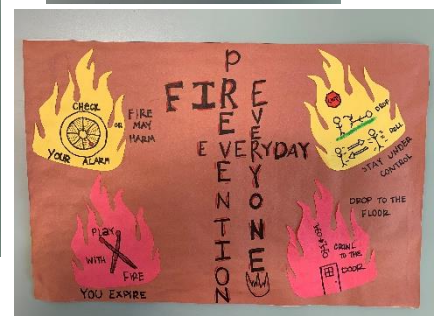 FIRE
PREVENTION
EVERYONE
EVERYDAY
CHECK
YOUR ALARM
OR
FIRE
MAY
HARM
DROP
ROLL
STAY UNDER
CONTROL
Play
WITH
FIRE
YOU EXPIRE
DROP TO THE
FLOOR
TO THE
DOOR